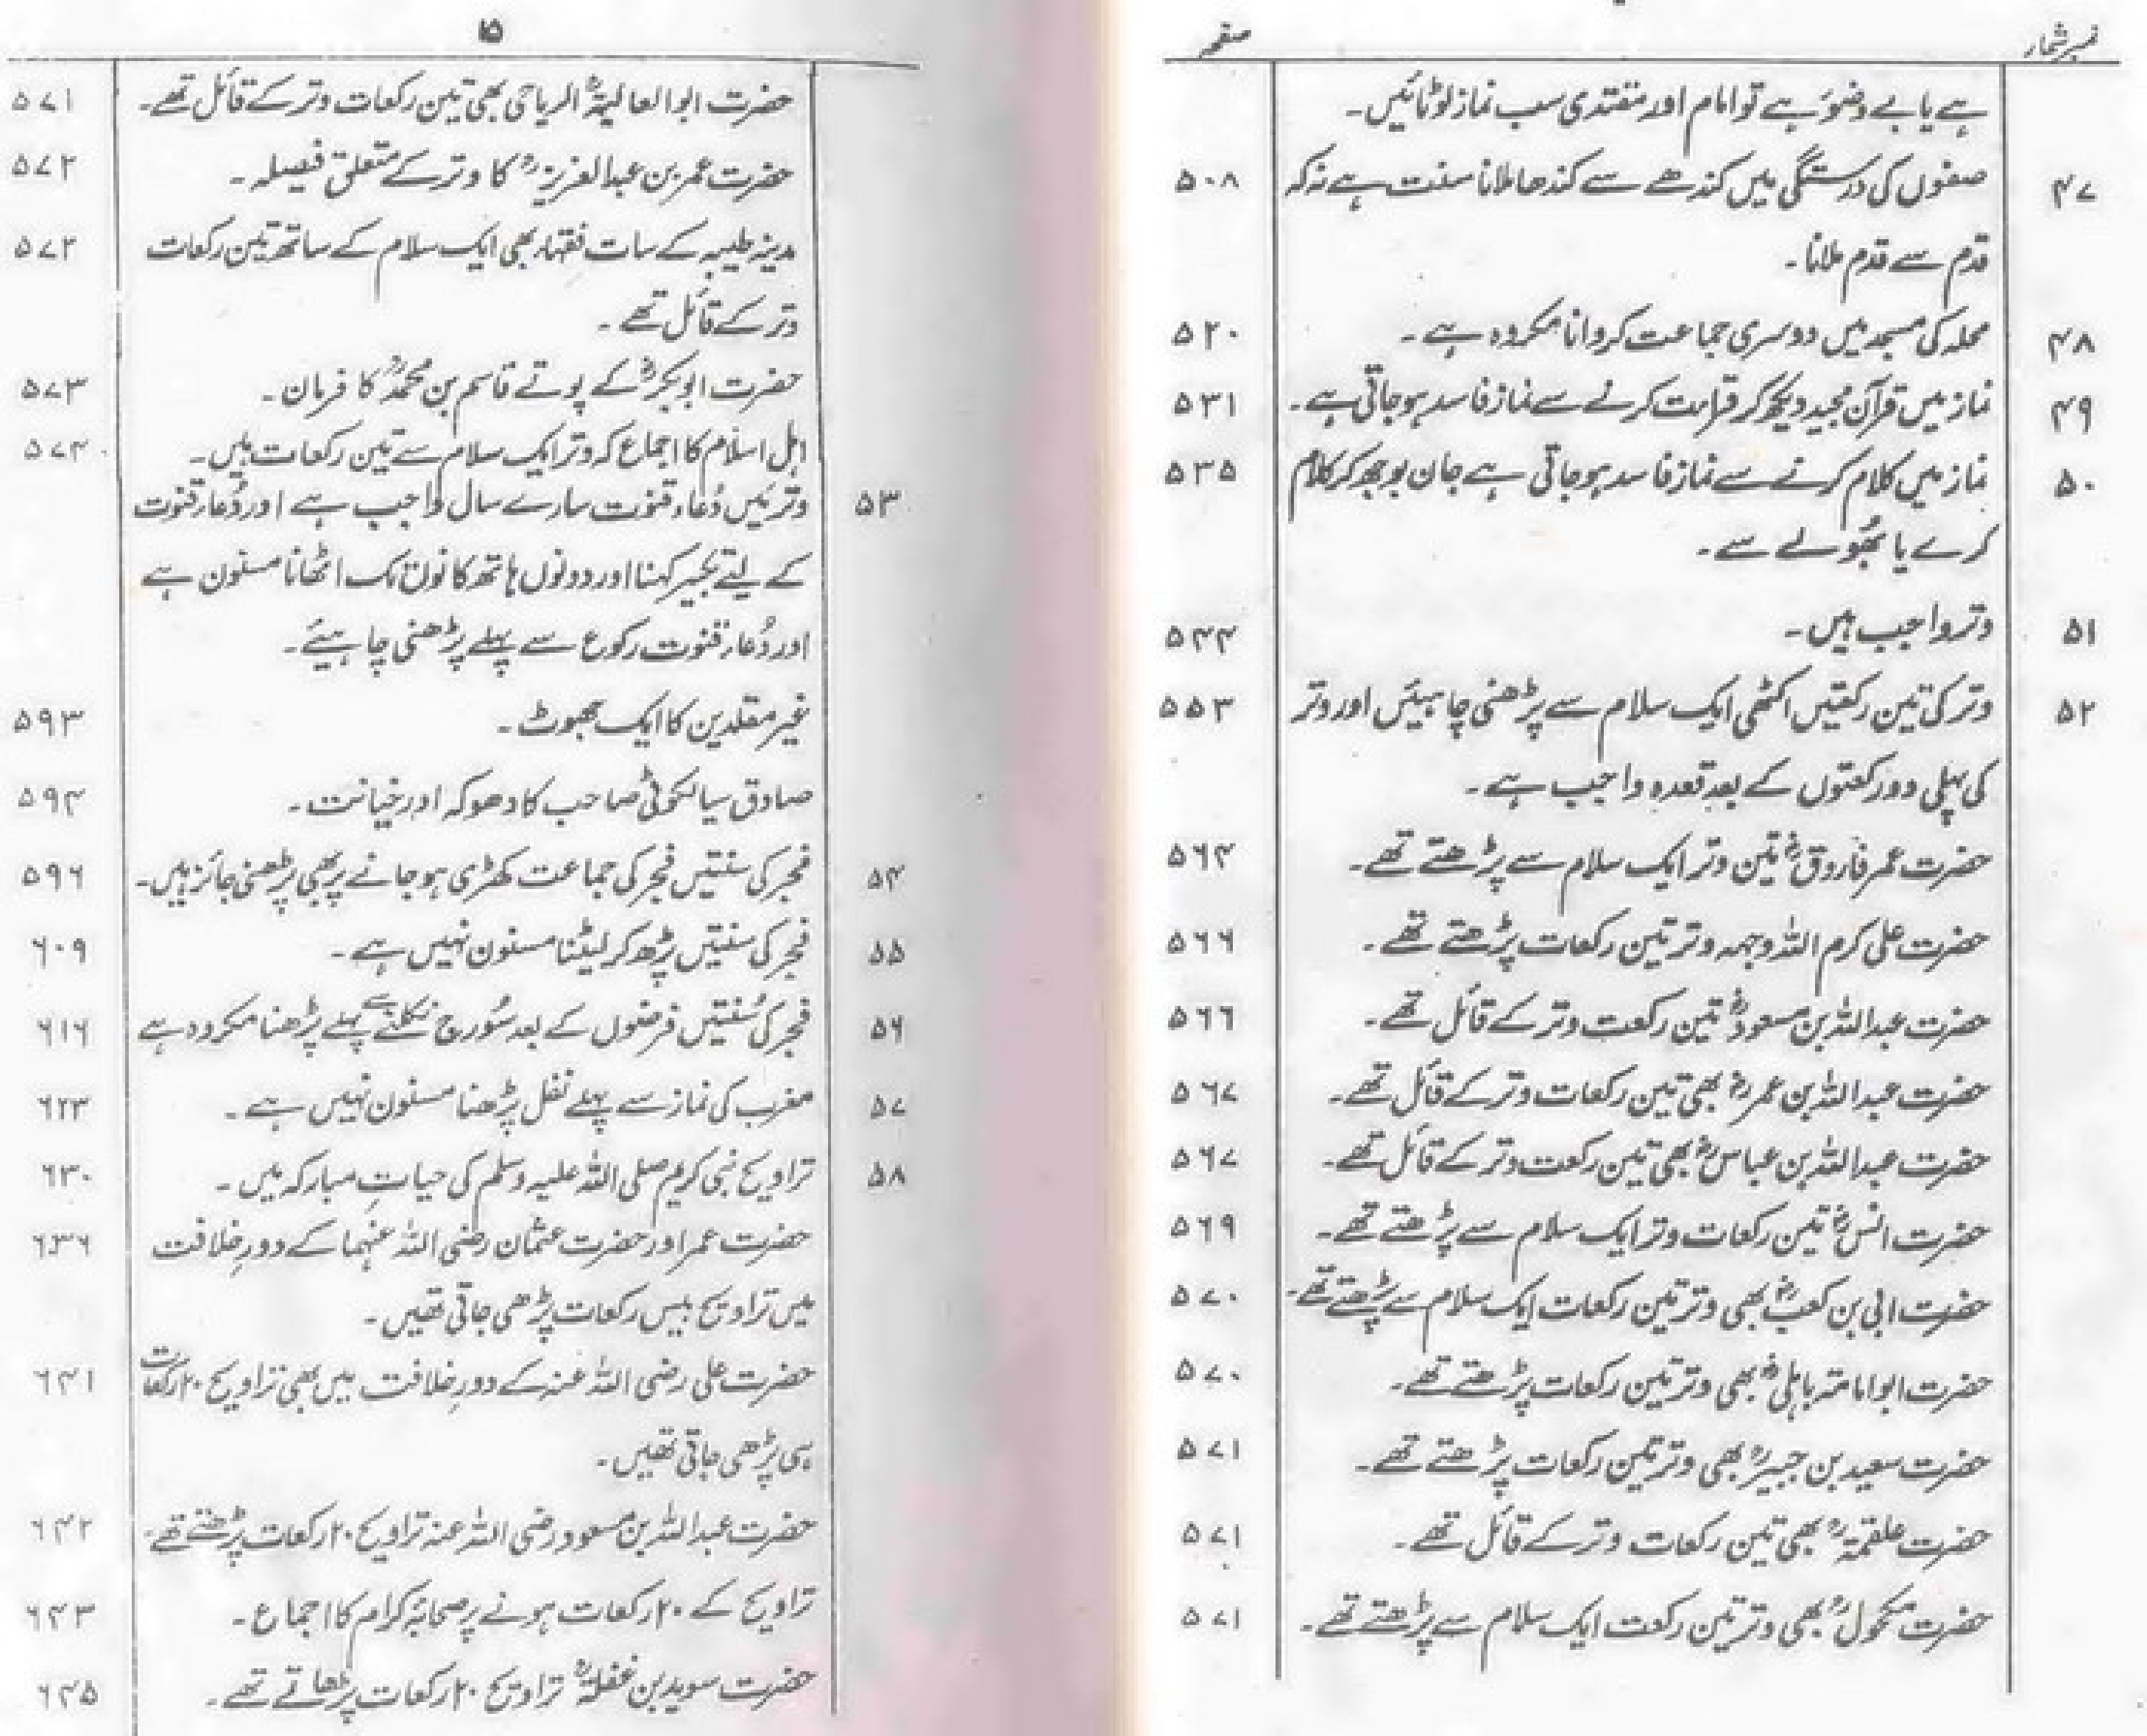 نمبر شمار صفحہ
ہے یا بے وضو ہے تو امام اور مقتدی سب نماز لوٹائیں۔
۴۷ صفوں کی درستگی میں کندھے سے کندھا ملانا سنت ہے نہ کہ ۵۰۸
قدم سے قدم ملانا۔
۴۸ محلہ کی مسجد میں دوسری جماعت کروانا مکروہ ہے۔ ۵۲۰
۴۹ نماز میں قرآن مجید دیکھ کر قراءت کرنے سے نماز فاسد ہو جاتی ہے۔ ۵۳۱
۵۰ نماز میں کلام کرنے سے نماز فاسد ہو جاتی ہے جان بوجھ کر کلام ۵۳۵
کرے یا بھُولے سے۔
۵۱ وتر واجب ہیں۔ ۵۴۴
۵۲ وتر کی تین رکعتیں اکٹھی ایک سلام سے پڑھنی چاہیئیں اور وتر ۵۵۳
کی پہلی دو رکعتوں کے بعد قعدہ واجب ہے۔
حضرت عمر فاروقؓ تین وتر ایک سلام سے پڑھتے تھے۔ ۵۶۴
حضرت علی کرم اللہ وجہہ وتر تین رکعات پڑھتے تھے۔ ۵۶۶
حضرت عبداللہ بن مسعودؓ تین رکعت وتر کے قائل تھے۔ ۵۶۶
حضرت عبداللہ بن عمرؓ بھی تین رکعات وتر کے قائل تھے۔ ۵۶۷
حضرت عبداللہ بن عباسؓ بھی تین رکعت وتر کے قائل تھے۔ ۵۶۷
حضرت انسؓ تین رکعات وتر ایک سلام سے پڑھتے تھے۔ ۵۶۹
حضرت ابی بن کعبؓ بھی وتر تین رکعات ایک سلام سے پڑھتے تھے۔ ۵۷۰
حضرت ابوامامہ باہلیؓ بھی وتر تین رکعات پڑھتے تھے۔ ۵۷۰
حضرت سعید بن جبیرؒ بھی وتر تین رکعات پڑھتے تھے۔ ۵۷۱
حضرت علقمہؒ بھی تین رکعات وتر کے قائل تھے۔ ۵۷۱
حضرت مکحولؒ بھی وتر تین رکعت ایک سلام سے پڑھتے تھے۔ ۵۷۱
۱۵
حضرت ابوالعالیۃؒ الریاحی بھی تین رکعات وتر کے قائل تھے۔ ۵۷۱
حضرت عمر بن عبدالعزیزؒ کا وتر کے متعلق فیصلہ۔ ۵۷۲
مدینہ طیبہ کے سات فقہاء بھی ایک سلام کے ساتھ تین رکعات ۵۷۲
وتر کے قائل تھے۔
حضرت ابوبکرؓ کے پوتے قاسم بن محمدؒ کا فرمان۔ ۵۷۳
اہل اسلام کا اجماع کہ وتر ایک سلام سے تین رکعات ہیں۔ ۵۷۴
۵۳ وتر میں دُعاء قنوت سارے سال واجب ہے اور دُعاء قنوت
کے لیے تکبیر کہنا اور دونوں ہاتھ کانوں تک اٹھانا مسنون ہے
اور دُعاء قنوت رکوع سے پہلے پڑھنی چاہیئے۔
غیر مقلدین کا ایک جھوٹ۔ ۵۹۳
صادق سیالکوٹی صاحب کا دھوکہ اور خیانت۔ ۵۹۴
۵۴ فجر کی سنتیں فجر کی جماعت کھڑی ہو جانے پر بھی پڑھنی جائز ہیں۔ ۵۹۶
۵۵ فجر کی سنتیں پڑھ کر لیٹنا مسنون نہیں ہے۔ ۶۰۹
۵۶ فجر کی سُنتیں فرضوں کے بعد سُورج نکلنے سے پہلے پڑھنا مکروہ ہے ۶۱۶
۵۷ مغرب کی نماز سے پہلے نفل پڑھنا مسنون نہیں ہے۔ ۶۲۳
۵۸ تراویح نبی کریم صلی اللہ علیہ وسلم کی حیاتِ مبارکہ میں۔ ۶۳۰
حضرت عمر اور حضرت عثمان رضی اللہ عنہما کے دورِ خلافت ۶۳۶
میں تراویح بیس رکعات پڑھی جاتی تھیں۔
حضرت علی رضی اللہ عنہ کے دورِ خلافت میں بھی تراویح ۲۰ رکعات ۶۴۱
ہی پڑھی جاتی تھیں۔
حضرت عبداللہ بن مسعود رضی اللہ عنہ تراویح ۲۰ رکعات پڑھتے تھے۔ ۶۴۲
تراویح کے ۲۰ رکعات ہونے پر صحابۂ کرام کا اجماع۔ ۶۴۳
حضرت سوید بن غفلہؒ تراویح ۲۰ رکعات پڑھاتے تھے۔ ۶۴۵